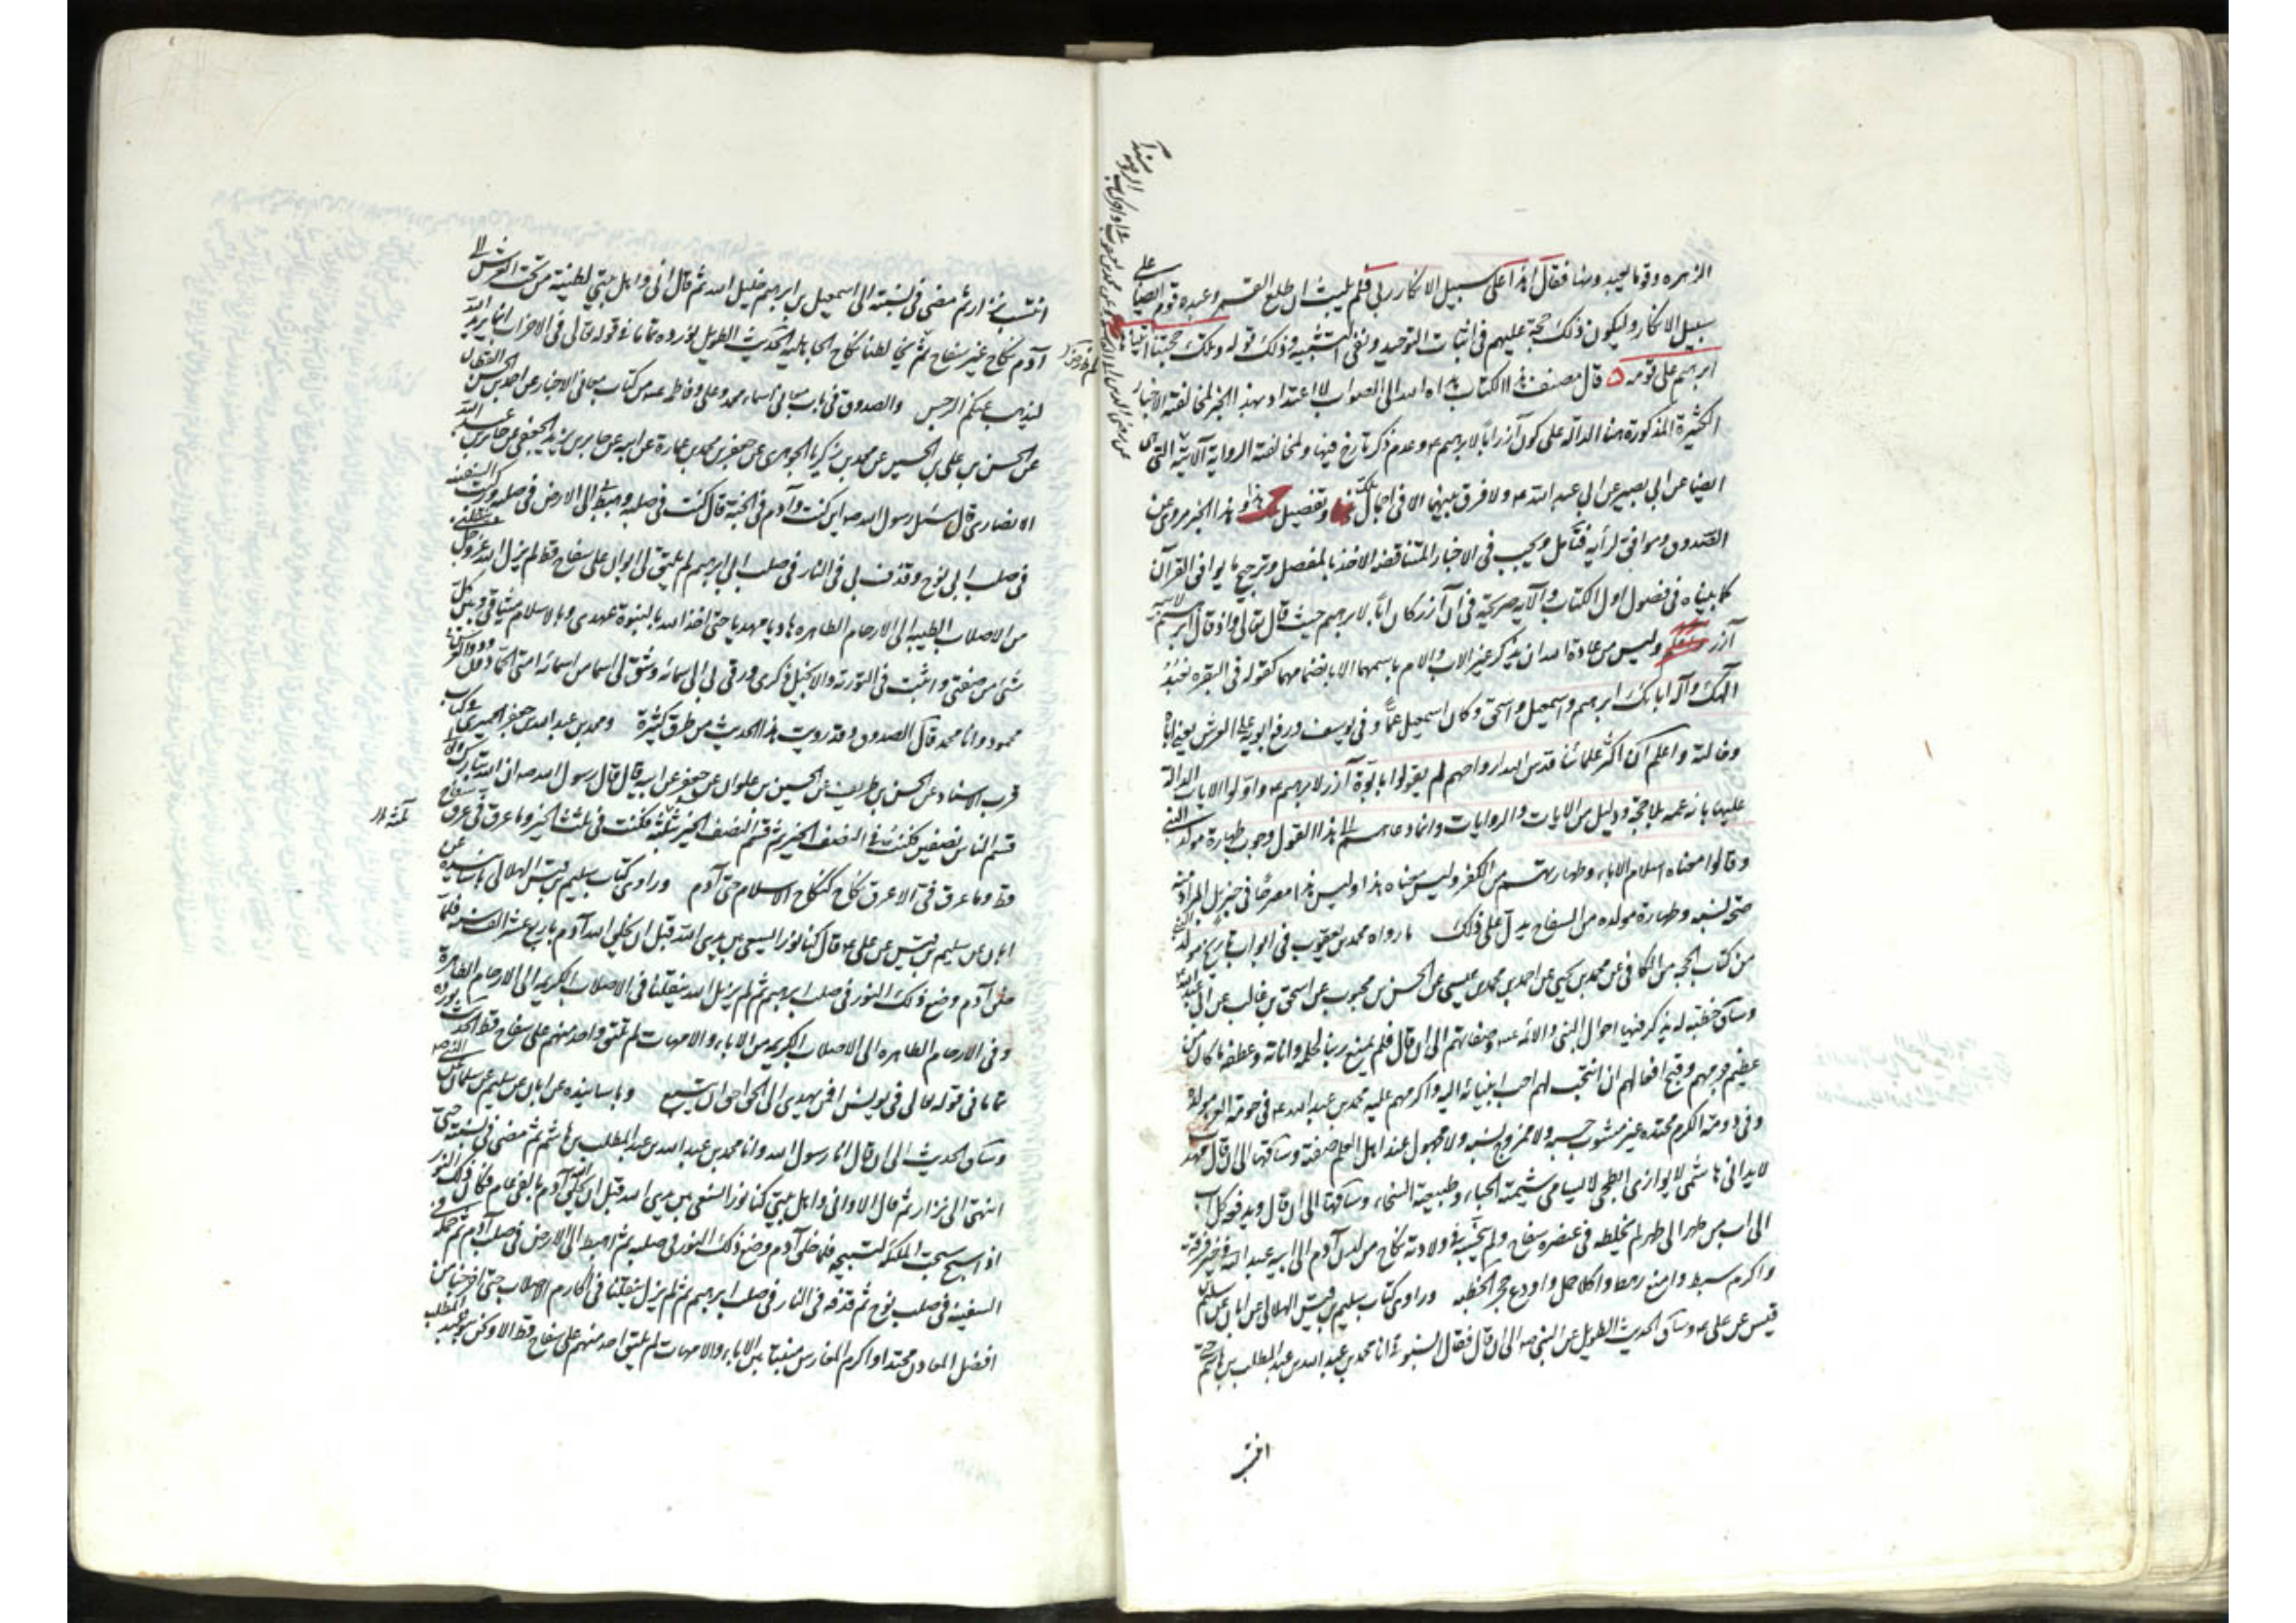 الزهره وقوما يعبد وضا فقال هذا على سبيل الانكار ربي فلم يلبث ان طلع القمر وعبده قوم ايضا على
سبيل الانكار وليكون ذلك حجة عليهم في اثبات التوحيد ونفي التشبيه وذلك قوله وتلك حجتنا آتيناها
ابرهيم على قومه ٥ قال مصنف هذا الكتاب هداه الله الى الصواب لا اعتداد بهذا الخبر لمخالفته الاخبار
الكثيرة المذكورة هنا الدالة على كون آزر ابا لابرهيم ع وعدم ذكر تارخ فيها ولمخالفته الرواية الآتية التي
ايضا عن ابي بصير عن ابي عبد الله ع ولا فرق بينهما الا في اجمال تلك وتفصيل هذا وهذا الخبر مروي عن
الصدوق وموافق لرأيه فتأمل ويجب في الاخبار المتناقضه الاخذ بالمفصل وترجيح ما يوافق القرآن
كما بيناه في فصول اول الكتاب والآية صريحة في ان آزر كان ابا لابرهيم حيث قال تعالى واذ قال ابرهيم لابيه
آزر وليس من عادة الله ان يذكر غير الاب والام باسمهما الا بانضمامهما كقوله في البقره نعبد
الهك وآله ابائك ابرهيم واسمعيل واسحق وكان اسمعيل عمّا وفي يوسف ورفع ابويه على العرش يعني اباه
وخالته واعلم ان اكثر علمائنا قدس الله ارواحهم لم يقولوا بابوة آزر لابرهيم ع واولوا الايات الدالة
عليها بانه عمه بلا حجة ودليل من الايات والروايات وانما دعاهم الى هذا القول وجوب طهارة مولد النبي
وقالوا معناه اسلام الاباء وطهارتهم من الكفر وليس معناه هذا وليس هذا مصرحا في خبر بل المراد منه
صحة نسبه وطهارة مولده من السفاح يدل على ذلك ما رواه محمد بن يعقوب في ابواب تاريخ مولد النبي
من كتاب الحجه من الكافي عن محمد بن يحيى عن احمد بن محمد بن عيسى عن الحسن بن محبوب عن اسحق بن غالب عن ابي عبد الله
وساق خطبته له يذكر فيها احوال النبي والائمه ع وصفاتهم الى ان قال فلم يمنع ربنا لحلمه واناته وعطفه ما كان من
عظيم جرمهم وقبح افعالهم ان انتجب لهم احب انبيائه اليه واكرمهم عليه محمد بن عبد الله ع في حومة العز مولده
وفي دومة الكرم محتده غير مشوب حسبه ولا ممزوج نسبه ولا مجهول عند اهل العلم صفته وساقها الى ان قال مهذب
لا يدانى هاشمي لا يوازى ابطحي لا يسامى شيمته الحياء وطبيعته السخاء وساقها الى ان قال ويدفعه كل اب
الى اب من ظهر الى ظهر لم يخلطه في عنصره سفاح ولم ينجسه في ولادته نكاح من لدن آدم الى ابيه عبد الله في خير فرقة
واكرم سبط وامنع رهط واكلا حمل واودع حجر الخطبه وراوي كتاب سليم بن قيس الهلالي عن ابان عن سليم
قيس عن علي ع وساق الحديث الطويل عن النبي ص الى ان قال فقال انسبوني انا محمد بن عبد الله بن عبد المطلب بن هاشم حتى
انتسب
انتسب نزار ثم مضى في نسبته الى اسمعيل بن ابرهيم خليل الله ثم قال اني واهل بيتي لطينة من تحت العرش الى
آدم نكاح غير سفاح ثم نكاحا لطنا نكاح الجاهليه الحديث الطويل نورده تماما في قوله تعالى في الاحزاب انما يريد الله
ليذهب عنكم الرجس والصدوق في باب معاني اسماء محمد وعلي وفاطمه ع من كتاب معاني الاخبار عن احمد بن الحسن القطان
عن الحسن بن علي بن الحسين عن محمد بن زكريا الجوهري عن جعفر بن محمد بن عمارة عن ابيه عن جابر بن يزيد الجعفي عن جابر بن عبد الله
الانصاري قال سئل رسول الله ص اين كنت وآدم في الجنة قال كنت في صلبه وهبط بي الى الارض في صلبه وركبت السفينه
في صلب ابي نوح وقذف بي في النار في صلب ابي ابرهيم لم يلتق لي ابوان على سفاح قط لم يزل الله عز وجل ينقلني
من الاصلاب الطيبه الى الارحام الطاهره هاديا مهديا حتى اخذ الله بالنبوة عهدي وبالاسلام ميثاقي وبين كل
شئ من صفتي واثبت في التورية والانجيل ذكري ورقى بي الى سمائه وشق لي اسما من اسمائه امتي الحمادون وذو العرش
محمود وانا محمد قال الصدوق وقد رويت هذا الحديث من طرق كثيرة ومحمد بن عبد الله بن جعفر الحميري في كتاب
قرب الاسناد عن الحسن بن ظريف عن الحسين بن علوان عن جعفر عن ابيه قال قال رسول الله ص ان الله تبارك وتعالى
قسم الناس نصفين فكنت في النصف الخير ثم قسم النصف الخير ثلثة فكنت في ثلث الخير وما عرق في عرق سفاح
قط وما عرق في الا عرق نكاح كنكاح الاسلام حتى آدم وراوي كتاب سليم بن قيس الهلالي باسانيده عن
ابان عن سليم بن قيس عن علي ع قال كنا نورا يسعى بين يدي الله قبل ان يخلق الله آدم باربع عشر الف سنه فلما
خلق آدم وضع ذلك النور في صلب ابرهيم ثم لم يزل الله ينقلنا في الاصلاب الكريمه الى الارحام الطاهرة
وفي الارحام الطاهره الى الاصلاب الكريمه من الاباء والامهات لم يلتق واحد منهم على سفاح قط الحديث
تماما في قوله تعالى في يونس افمن يهدي الى الحق احق ان يتبع وباسانيده عن ابان عن سليم عن سلمان عن النبي ص
وساق الحديث الى ان قال انا رسول الله وانا محمد بن عبد الله بن عبد المطلب بن هاشم ثم مضى في نسبته حتى
انتهى الى نزار ثم قال الا واني واهل بيتي كنا نورا نسعى بين يدي الله قبل ان يخلق الله آدم بالفي عام فكان ذلك النور
اذا سبح سبحت الملئكة لتسبيحه فلما خلق آدم وضع ذلك النور في صلبه ثم اهبط الى الارض في صلب آدم ثم حمله في
السفينه في صلب نوح ثم قذفه في النار في صلب ابرهيم ثم لم يزل ينقلنا في اكارم الاصلاب حتى اخرجنا من
افضل المعادن محتدا واكرم المغارس منبتا بين الاباء والامهات لم يلتق احد منهم على سفاح قط الا ونحن بنو عبد المطلب